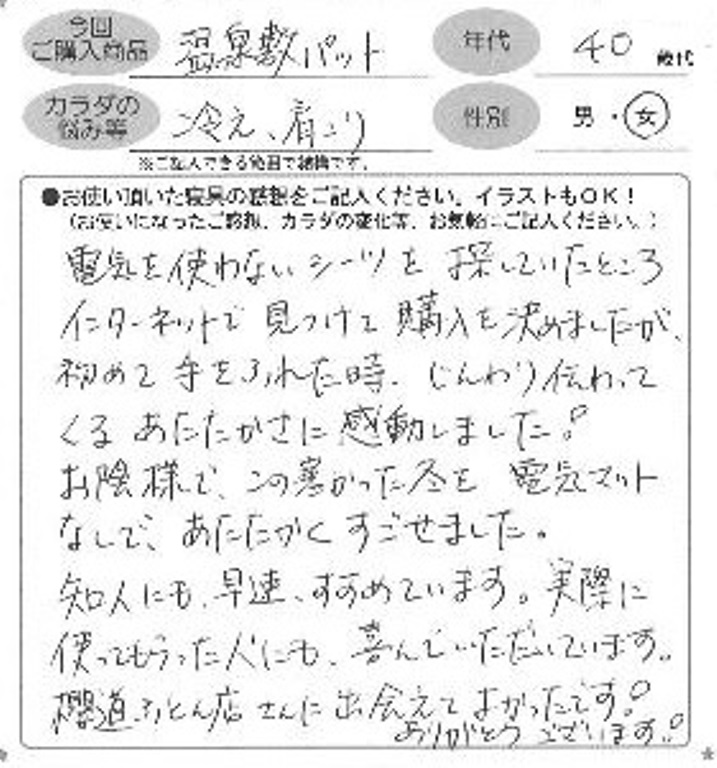 今回
ご購入商品 温泉敷パット 年代 40 歳代
カラダの
悩み等 冷え、肩こり 性別 男・女
※ご記入できる範囲で結構です。
●お使い頂いた寝具の感想をご記入ください。イラストもOK！
（お使いになったご感想、カラダの変化等、お気軽にご記入ください。）
電気を使わないシーツを探していたところ
インターネットで見つけて購入を決めましたが、
初めて手をふれた時、じんわり伝わって
くるあたたかさに感動しました!
お陰様で、この寒かった冬を電気マット
なしで、あたたかくすごせました。
知人にも、早速、すすめています。実際に
使ってもらった人にも、喜んでいただいています。
道ふとん店さんに出会えてよかったです!
ありがとうございます!